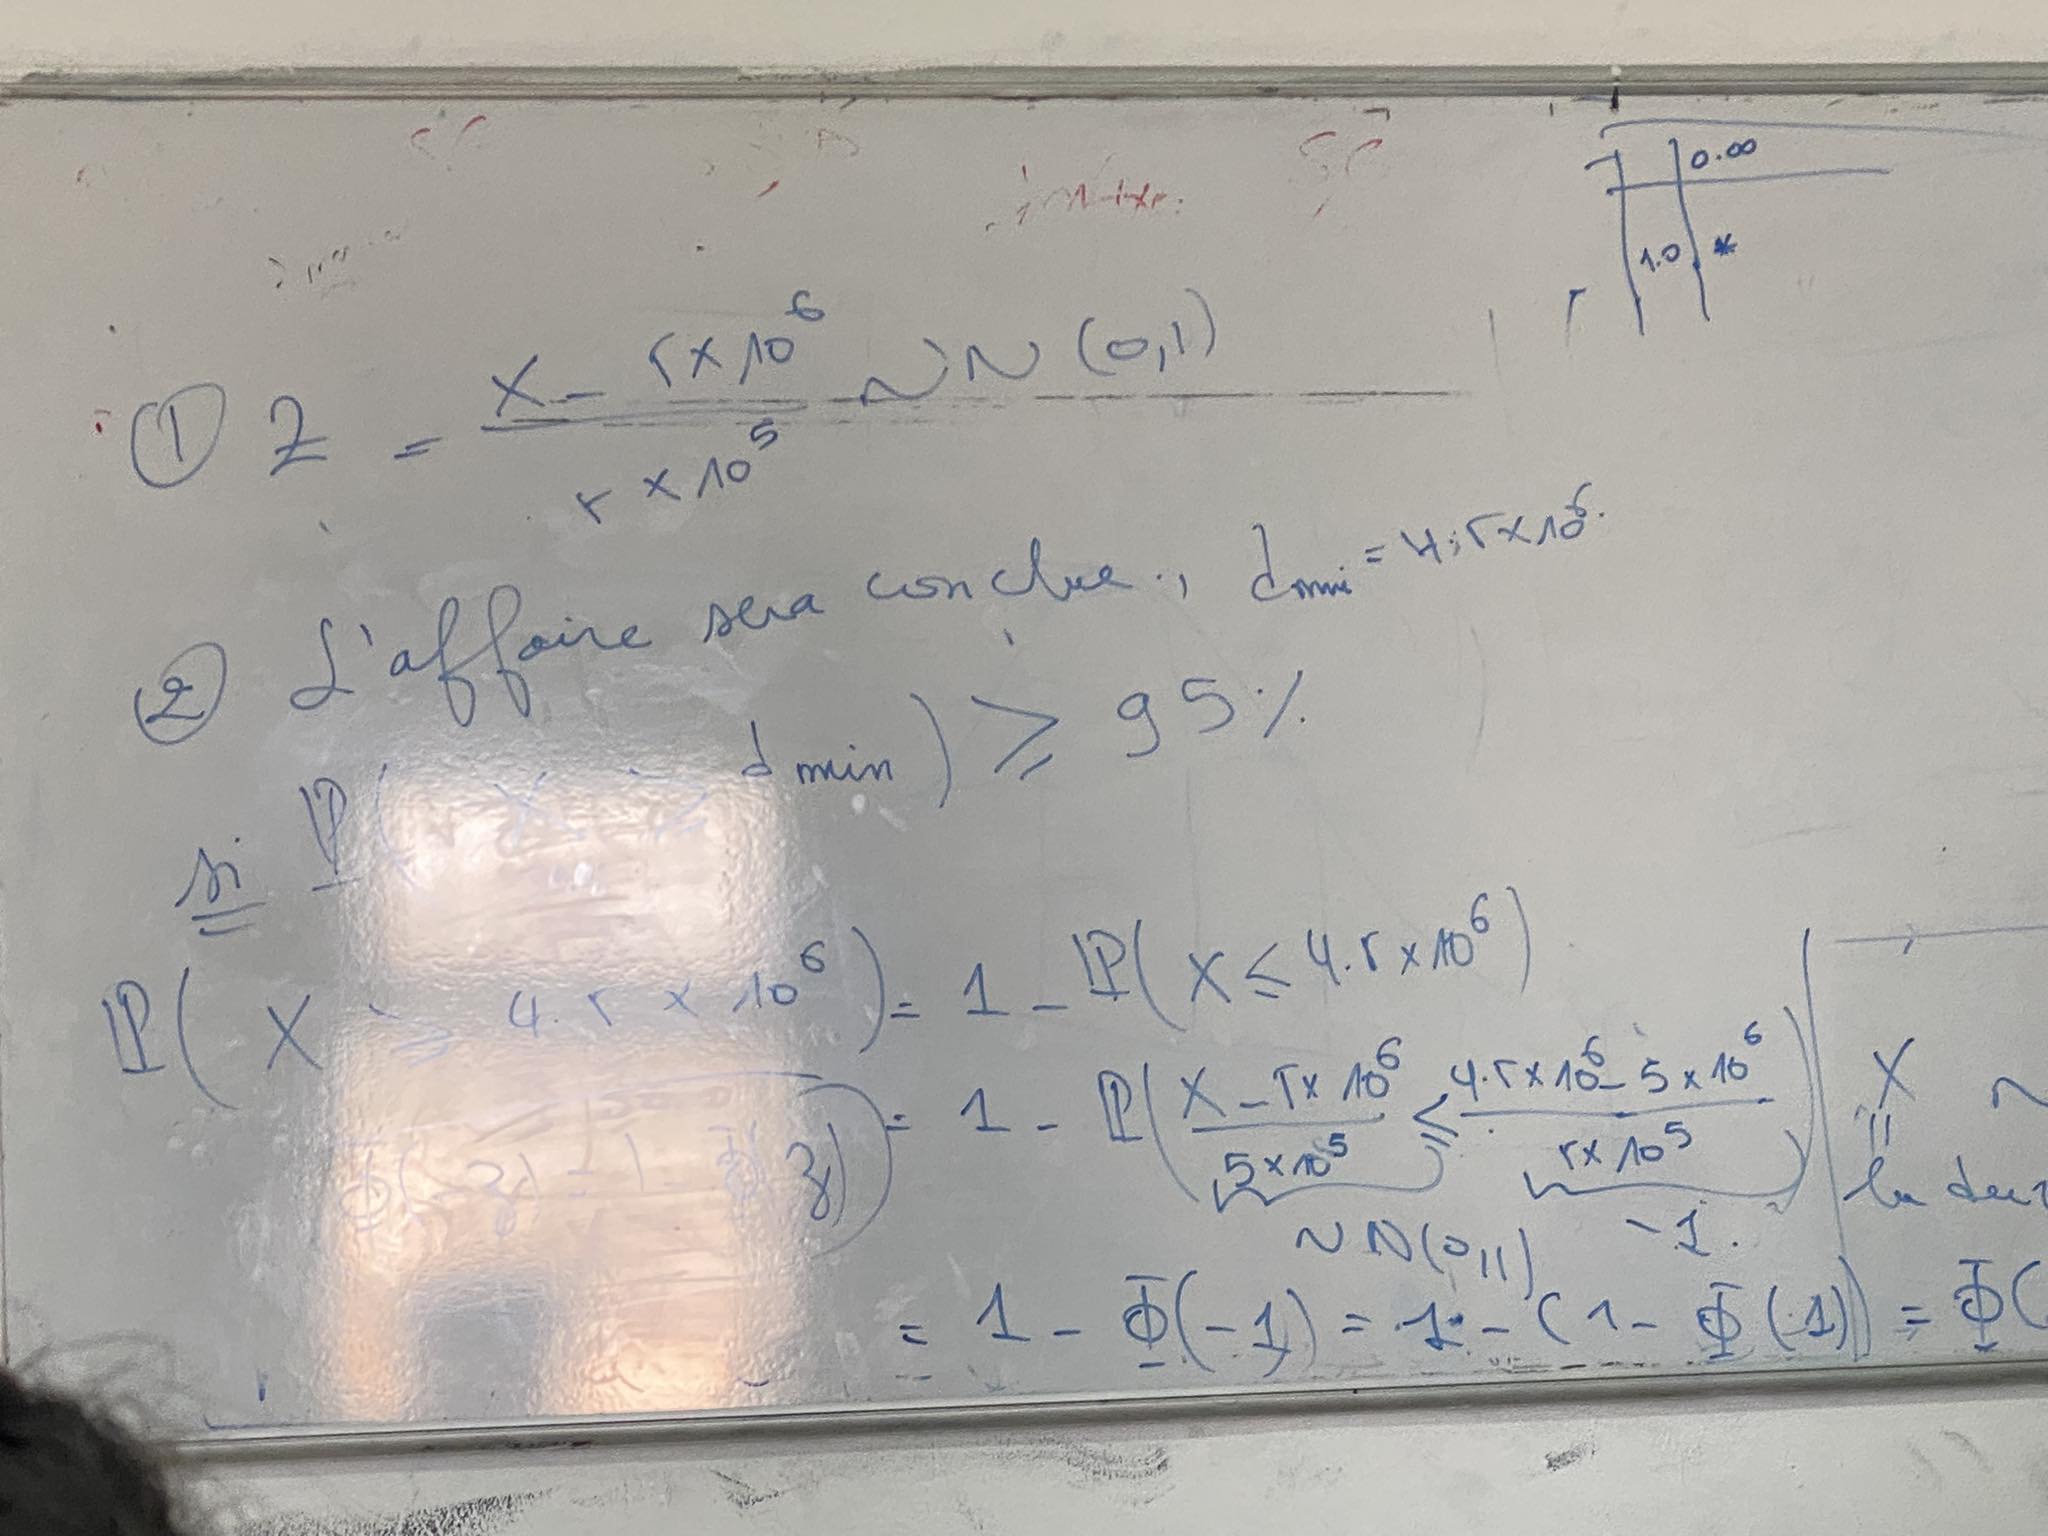 0.00
1.0 *
① Z = (X - 5×10⁶)/(5×10⁵) ~ N(0,1)
② L'affaire sera conclue., dmin = 4.5×10⁶.
si ℙ( X ≥ dmin) ≥ 95%
ℙ( X ≥ 4.5×10⁶) = 1 - ℙ( X ≤ 4.5×10⁶)
= 1 - ℙ( (X - 5×10⁶)/(5×10⁵) ≤ (4.5×10⁶ - 5×10⁶)/(5×10⁵) )
Φ(-z) = 1 - Φ(z)
~ N(0,1) -1.
= 1 - Φ(-1) = 1 - (1 - Φ(1)) = Φ(
X ~
||
la